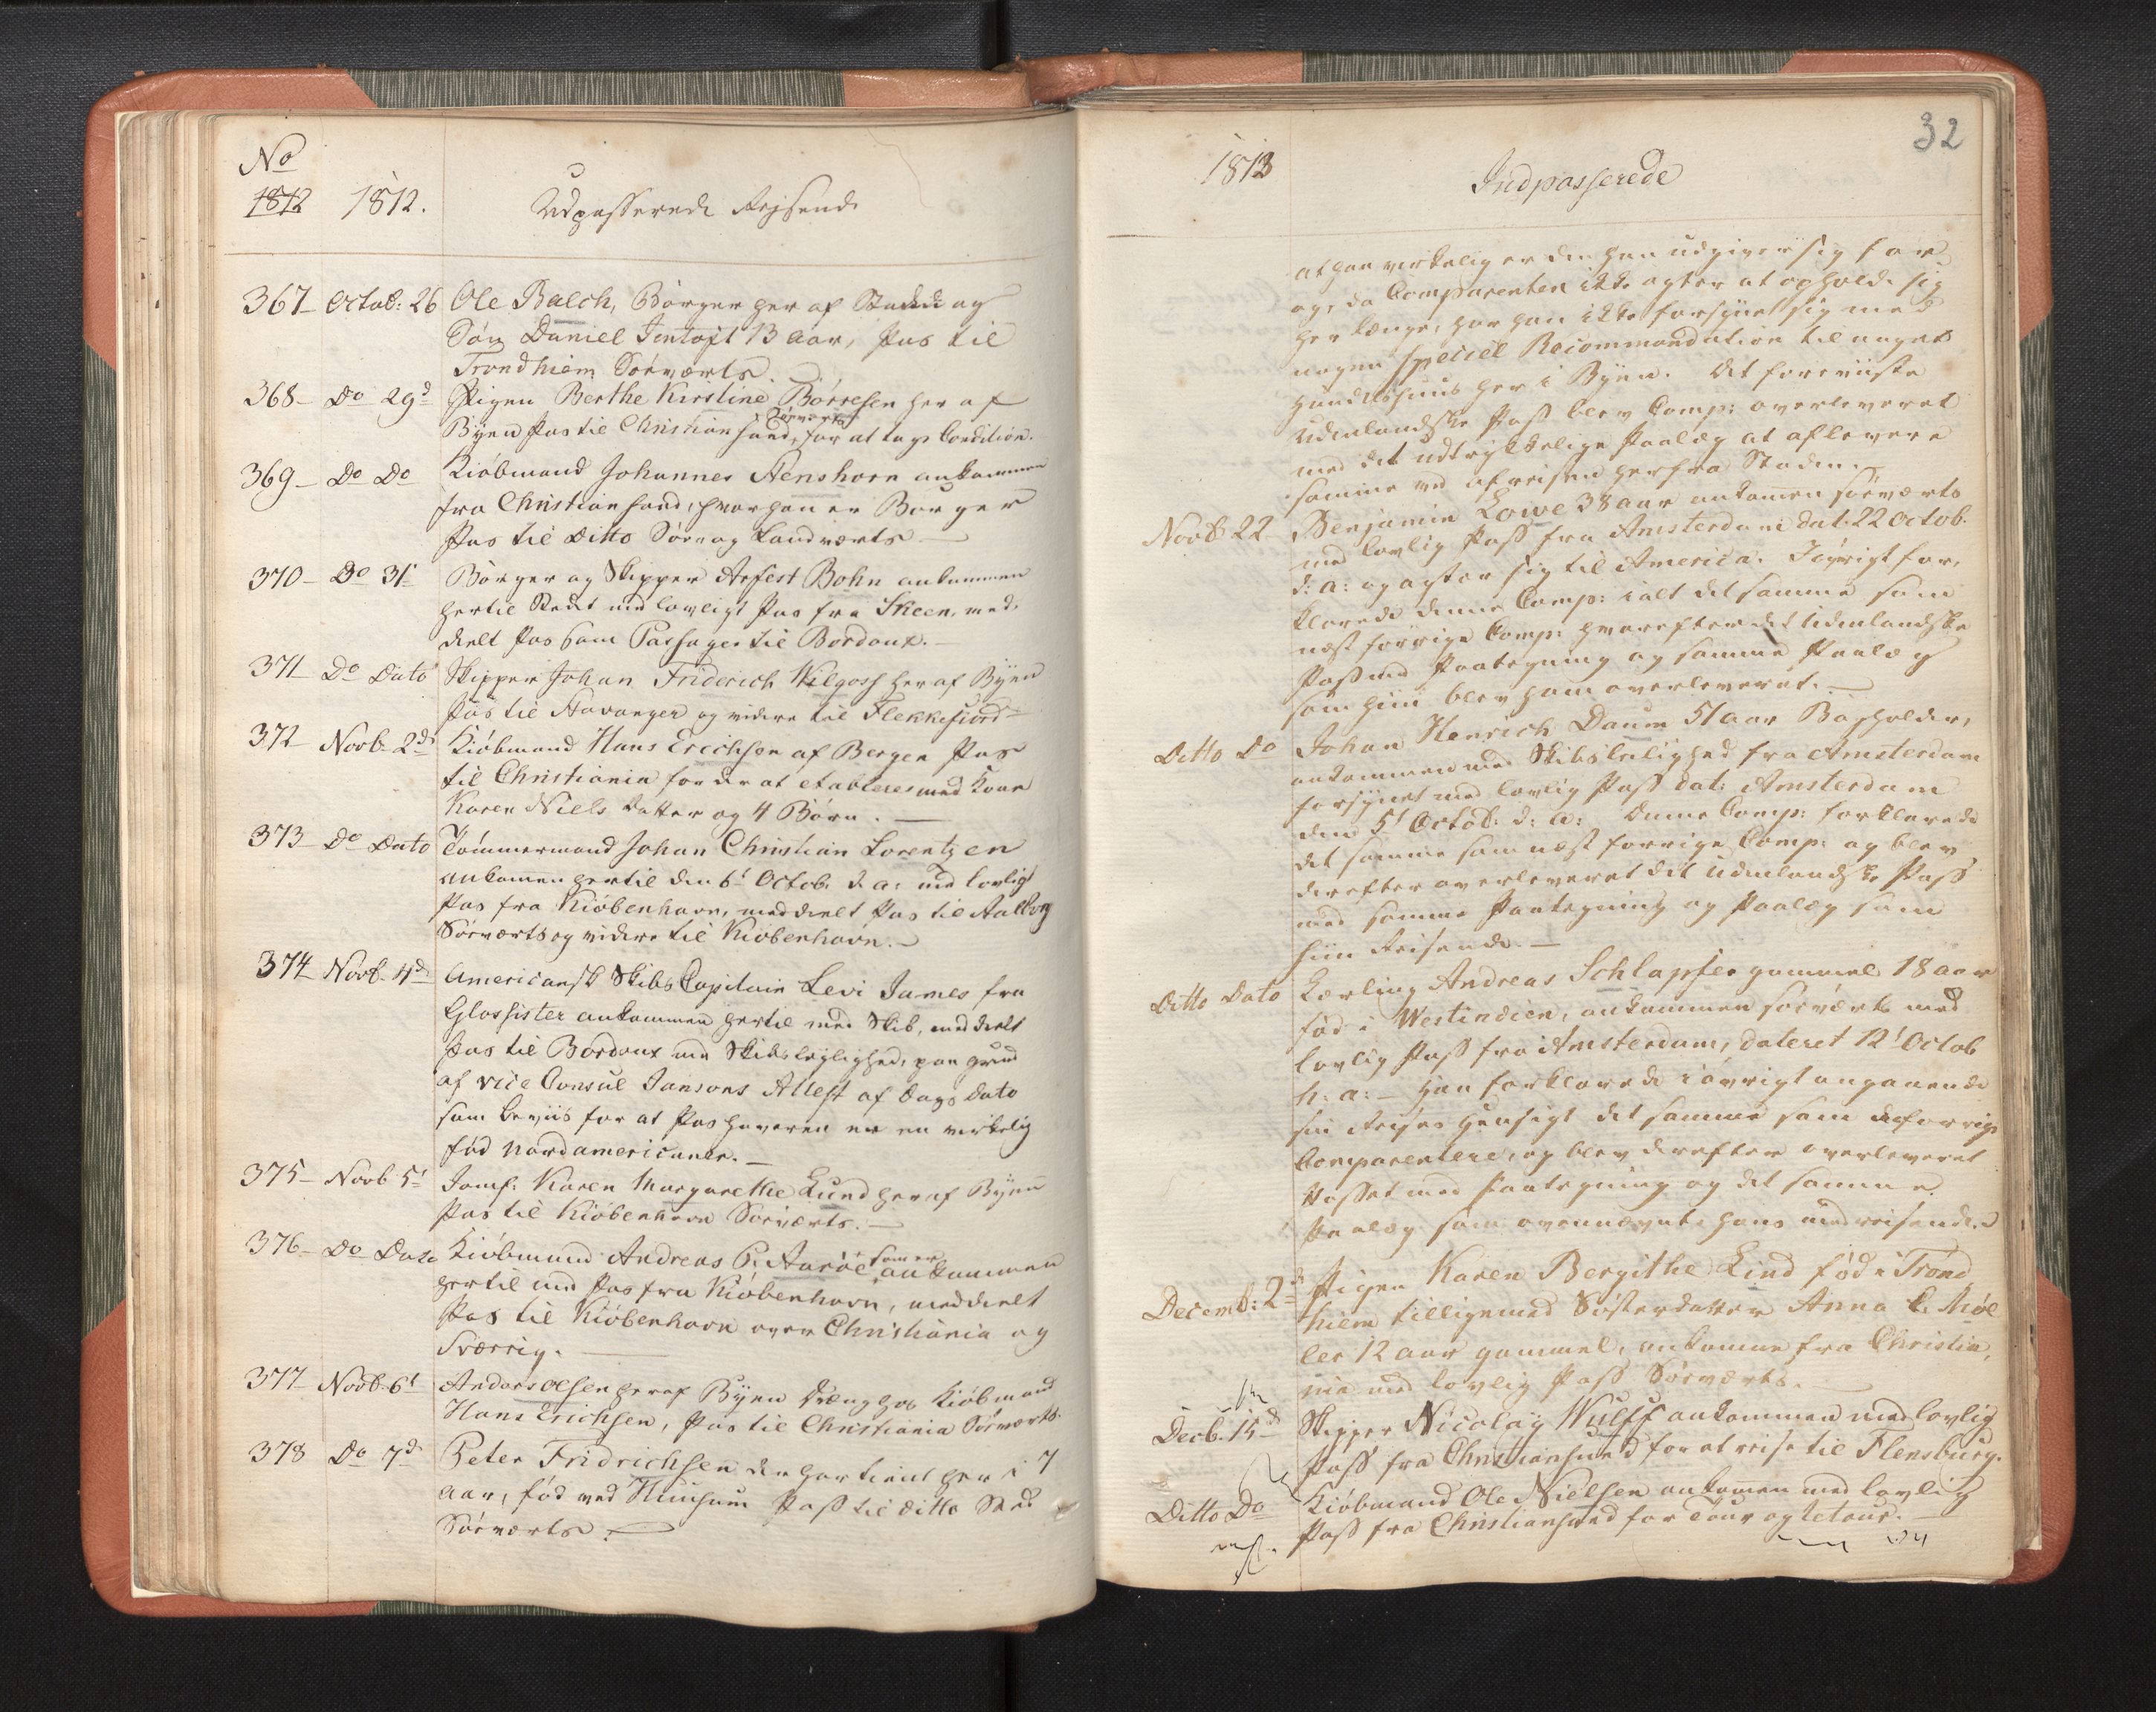 No
1812 1812. Udpasserede Rejsende
367 Octob: 26 Ole Balch, Borger her af Staden og
Søn Daniel Jentoft 13 aar, Pas til
Trondhiem Søeværts.
368 Do 29d Pigen Berthe Kirstine Börresen her af
Søeværts
Byen Pas til Christiansand, for at tage Condition.
369 Do Do Kiöbmand Johannes Stenshorn ankommen
fra Christiansand, hvor han er Borger
Pas til Ditto Søe og Landværts
370 Do 31t Borger og Skipper Arfest Bohn ankommen
hertil Stedet med lovligt Pas fra Skeen, med,
deelt Pas som Passager til Bordoux.
371 Do Dato Skipper Johan Friderich Wilgoss her af Byen
Pas til Stavanger og videre til Flekkefiord
372 Novb. 2d Kiöbmand Hans Erichsen af Bergen Pas
til Christiania for der at etableres med Kone
Karen Niels Datter og 4 Börn.
373 Do Dato Tömmermand Johan Christian Lorentzen
ankommen hertil den 6t Octob. d. a: med lovligt
Pas fra Kiöbenhavn, meddeelt Pas til Aalborg
Söeværts og videre til Kiöbenhavn.
374 Novb. 4d Americansk Skibs Capitain Levi James fra
Glossister ankommen hertil med Skib, meddeelt
Pas til Bordoux med Skibsleylighed, paa Grund
af vice Consul Jansons Attest af Dags Dato
som Beviis for at Pashaveren er en virkelig
fød Nordamericaner.
375 Novb 5t Jomf: Karen Margarethe Lund her af Byen
Pas til Kiöbenhavn Söeværts.
376 Do Dato Kiöbmand Andreas P. Auröe som er ankommen
hertil med Pas fra Kiöbenhavn, meddeelt
Pas til Kiöbenhavn over Christiania og
Sverrig.
377 Novb. 6t Anders Olsen her af Byen Dreng hos Kiöbmand
Hans Erichsen, Pas til Christiania Söeværts.
378 Do 7d Peter Fridrichsen der har tient her i 7
aar, fød ved Huusum Pass til ditto Sted
Söeværts.
32
1812 Indpasserede
at han virkelig er den han udgiver sig for
og, da Comparenten ikke agter at opholde sig
her længe, har han ikke forsynet sig med
nogen speciel Recommandation til noget
Handelshuus her i Byen. Det foreviiste
Udenlandske Pass blev Comp: overleveret
med det udtrykkelige Paalæg at aflevere
samme ved afreisen herfra Staden.
Novb 22 Benjamin Lowe 38 aar ankommen söeværts
med lovlig Pass fra Amsterdam dat. 22 Octob.
d: a: og agter sig til America. Iøvrigt for,
klarede denne Comp: i alt det samme som
næst forrige Comp: hvorefter det Udenlandske
Pass med Paategning og samme Paalæg
som hiin blev ham overleveret.
Ditto Do Johan Henrich Daum 51 aar Bogholder,
ankommen med Skibsleilighed fra Amsterdam
forsynet med lovlig Pass dat: Amsterdam
den 5t Octob: d: a: Denne Comp: forklarede
det samme som næst forrige Comp: og blev
derefter overleveret dit Udenlandske Pass
med samme Paategning og Paalæg som
hiin Reisende.
Ditto Dato Lærling Andreas Schlapfer gammel 18 aar
fød i Westindien, ankommen söeværts med
lovlig Pass fra Amsterdam, dateret 12t Octob
h: a: Han forklarede i øvrigt angaaende
sin Reises Hensigt det samme som de forrige
Comparentere, og blev derefter overleveret
Passet med Paategning og det samme
Paalæg som ovennævnte hans medreisende.
Decemb: 2d Pigen Karen Bergithe Lind fød i Trond
hiem tilligemed Søsterdatter Anna C. Møl
ler 12 aar gammel, ankomne fra Christia,
nia med lovlig Pass Söeværts.
Decb. 15d Skipper Nicolay Wulff ankommen med lovlig
Pass fra Christiansund for at reise til Flensburg.
Ditto Do Kiöbmand Ole Nielsen ankommen med lovlig
Pass fra Christiansund for Tour og retour.